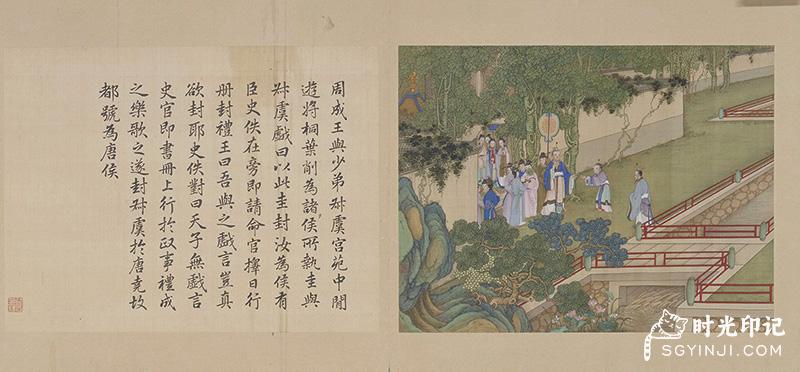 周成王與少弟叔虞宮苑中閒
遊將桐葉削為諸侯所執圭與
叔虞戲曰以此圭封汝為侯有
臣史佚在旁即請命官擇日行
冊封禮王曰吾與之戲言豈真
欲封耶史佚對曰天子無戲言
史官即書冊上行於政事禮成
之樂歌之遂封叔虞於唐堯故
都號為唐侯
时光印记
SGYINJI.COM